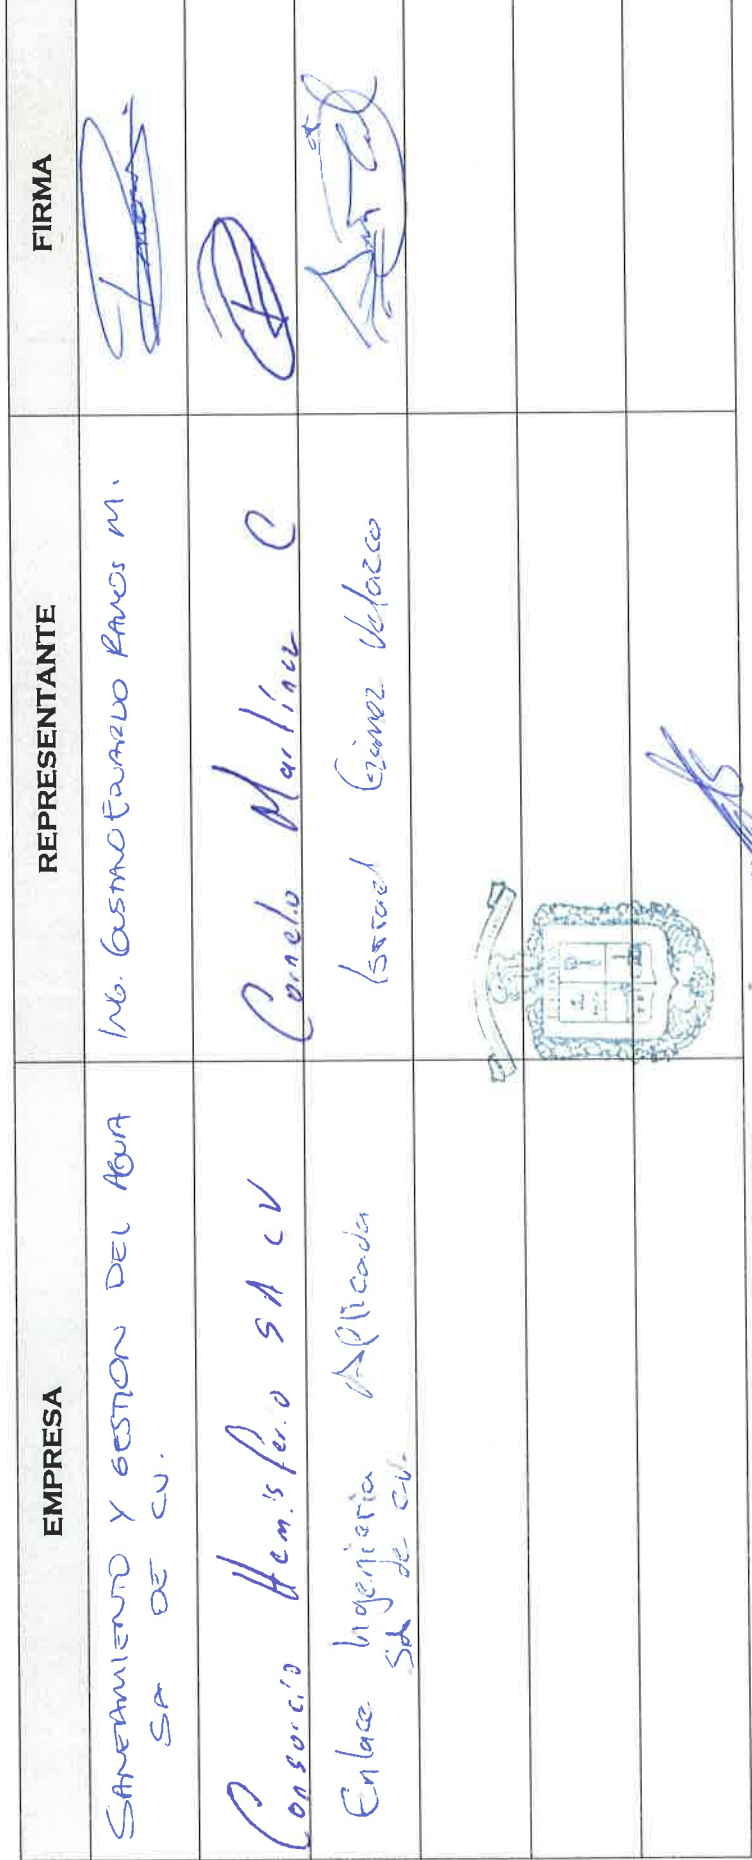 EMPRESA
REPRESENTANTE
FIRMA
SANEAMIENTO Y GESTION DEL AGUA
SA DE CV.
ING. GUSTAVO EDUARDO RAMOS M.
Consorcio Hemisferio SA CV
Cornelio Martínez C
Enlace Ingenieria Aplicada
SA de CV.
Israel Gómez Velazco